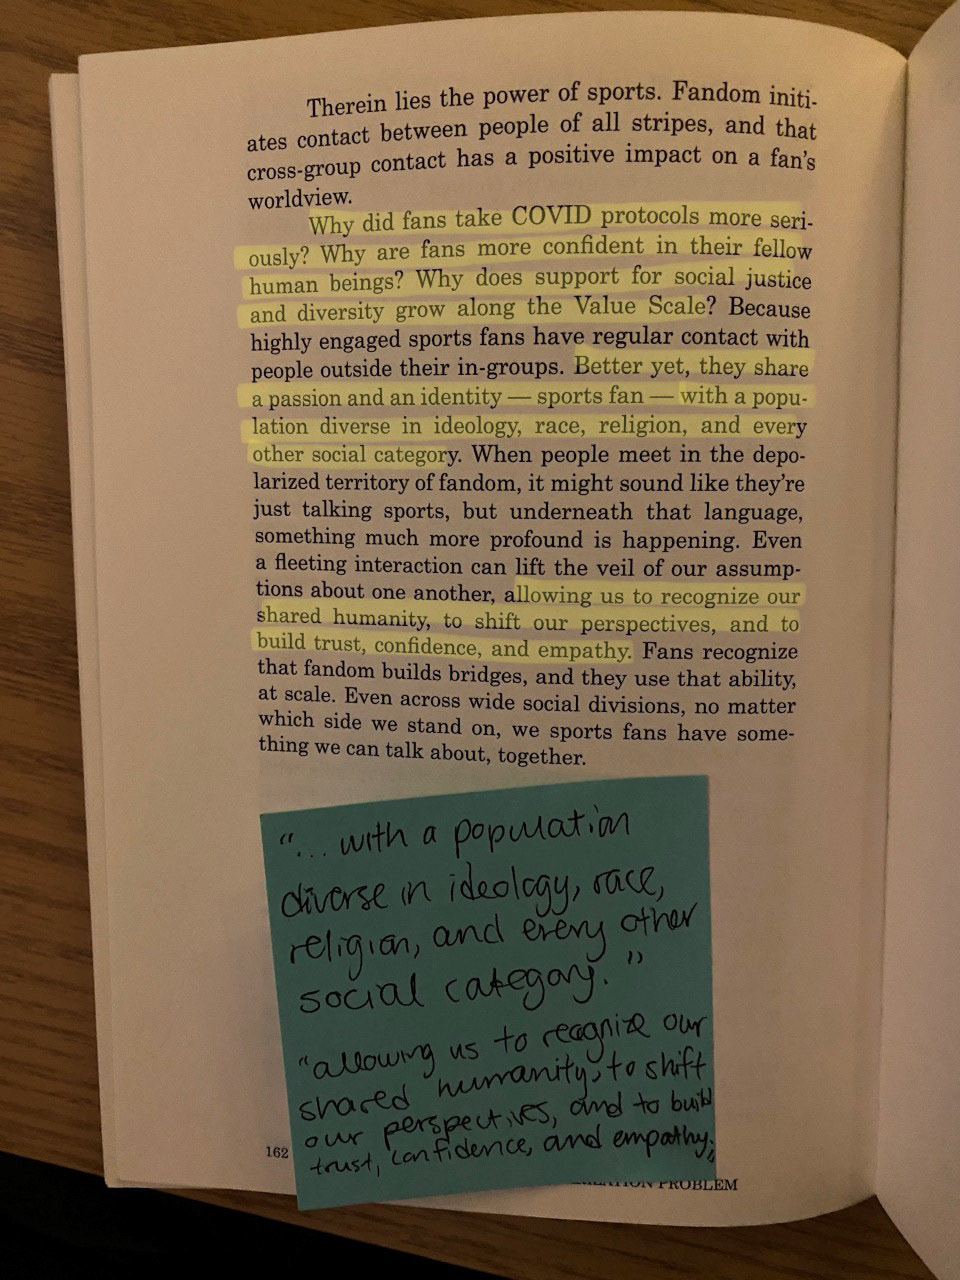 Therein lies the power of sports. Fandom initi-
ates contact between people of all stripes, and that
cross-group contact has a positive impact on a fan's
worldview.
Why did fans take COVID protocols more seri-
ously? Why are fans more confident in their fellow
human beings? Why does support for social justice
and diversity grow along the Value Scale? Because
highly engaged sports fans have regular contact with
people outside their in-groups. Better yet, they share
a passion and an identity — sports fan — with a popu-
lation diverse in ideology, race, religion, and every
other social category. When people meet in the depo-
larized territory of fandom, it might sound like they're
just talking sports, but underneath that language,
something much more profound is happening. Even
a fleeting interaction can lift the veil of our assump-
tions about one another, allowing us to recognize our
shared humanity, to shift our perspectives, and to
build trust, confidence, and empathy. Fans recognize
that fandom builds bridges, and they use that ability,
at scale. Even across wide social divisions, no matter
which side we stand on, we sports fans have some-
thing we can talk about, together.
"... with a population
diverse in ideology, race,
religion, and every other
social category."
"allowing us to recognize our
shared humanity, to shift
our perspectives, and to build
trust, confidence, and empathy."
162
PROBLEM